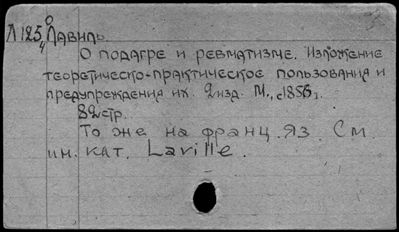 Л 125/4 Лавиль.
О подагре и ревматизме. Изложение
теоретическо-практическое пользования и
предупреждения их. 2 изд. М., с1856,
82 стр.
То же на франц. яз. См.
ин. кат. Laville.